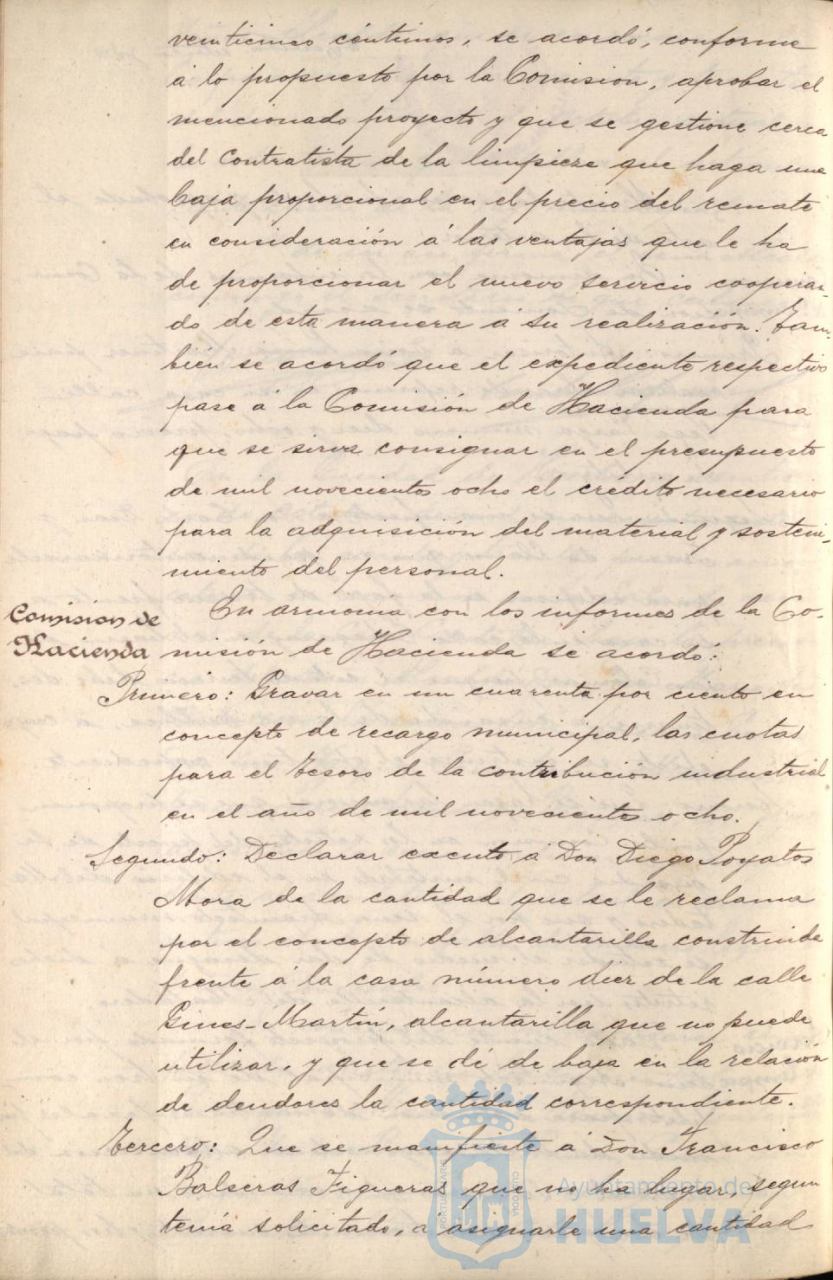 veinticinco céntimos, se acordó, conforme
á lo propuesto por la Comision, aprobar el
mencionado proyecto y que se gestione cerca
del Contratista de la limpieza que haga una
baja proporcional en el precio del remate
en consideración á las ventajas que le ha
de proporcionar el nuevo servicio cooperan-
do de esta manera á su realización. Tam-
bién se acordó que el expediente respectivo
pase á la Comisión de Hacienda para
que se sirva consignar en el presupuesto
de mil novecientos ocho el crédito necesario
para la adquisición del material y sosteni-
miento del personal.
Comision de
Hacienda
En armonia con los informes de la Co-
misión de Hacienda se acordó:
Primero: Gravar en un cuarenta por ciento en
concepto de recargo municipal, las cuotas
para el Tesoro de la contribución industrial
en el año de mil novecientos ocho.
Segundo: Declarar exento á Don Diego Poyatos
Mora de la cantidad que se le reclama
por el concepto de alcantarilla construida
frente á la casa número diez de la calle
Gines-Martín, alcantarilla que no puede
utilizar, y que se dé de baja en la relación
de deudores la cantidad correspondiente.
Tercero: Que se manifieste á Don Francisco
Balseras Figueras que no ha lugar, segun
tenia solicitado, á asignarle una cantidad
Ayuntamiento de
HUELVA